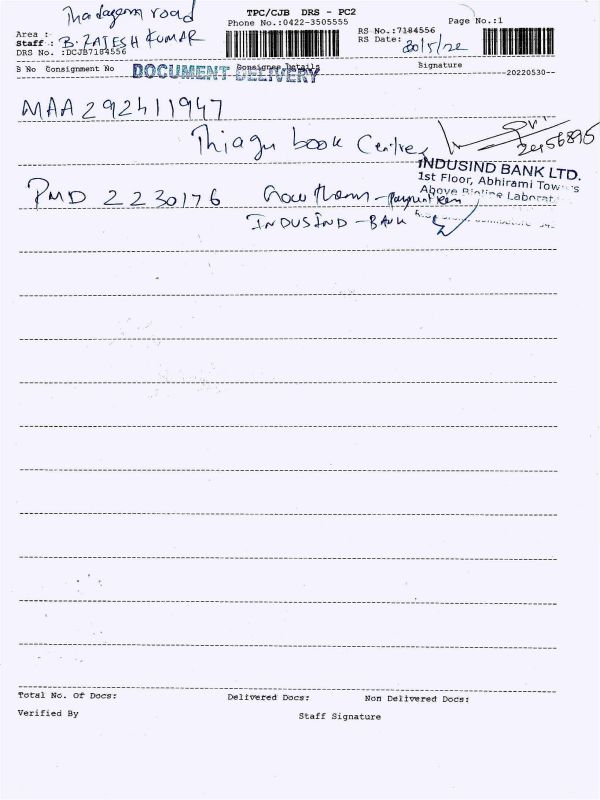 Thadagam road
TPC/CJB DRS - PC2
Phone No.:0422-3505555
Page No.:1
Area :
RS No.:7184556
Staff : B. RAJESH KUMAR
RS Date: 30/5/22
DRS No. :DCJB7184556
B No Consignment No Consignee Details Signature
DOCUMENT DELIVERY
20220530
MAA292411947
Thiagu book Centre
2456895
INDUSIND BANK LTD.
1st Floor, Abhirami Towers
Above Bioline Laborat
PMD 2230176
INDUSIND - BANK
Total No. Of Docs: Delivered Docs: Non Delivered Docs:
Verified By
Staff Signature